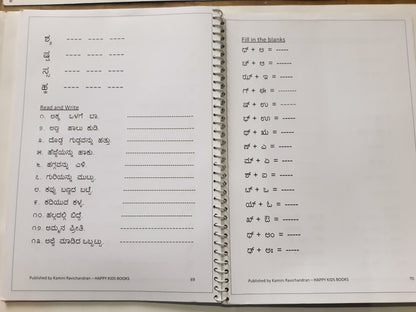 ---- ---- ----
---- ---- ----
---- ---- ----
---- ---- ----
Read and Write
೧. ಅಕ್ಕ ಒಳಗೆ ಬಾ.
೨. ಅಣ್ಣ ಹಾಲು ಕುಡಿ.
೩. ದೊಡ್ಡ ಗುಡ್ಡವನ್ನು ಹತ್ತು.
೫. ಹೆಜ್ಜೆಯನ್ನು ಹಾಕು.
೬. ಹಗ್ಗವನ್ನು ಎಳೆ.
೭. ಗುರಿಯನ್ನು ಮುಟ್ಟು.
೮. ಕಪ್ಪು ಬಣ್ಣದ ಬಟ್ಟೆ.
೯. ಕದಿಯುವ ಕಳ್ಳ.
೧೦. ಹಳ್ಳದಲ್ಲಿ ಬಿದ್ದೆ.
೧೧. ಅಮ್ಮನ ಪ್ರೀತಿ.
೧೩. ಅಜ್ಜಿ ಮಾಡಿದ ಒಬ್ಬಟ್ಟು.
Published by Kamini Ravichandran – HAPPY KIDS BOOKS 69
Fill in the blanks
+ ಅ = -----
+ ಆ = -----
+ ಇ = -----
+ ಈ = -----
+ ಉ = -----
+ ಊ = -----
+ ಋ = -----
+ ಎ = -----
+ ಏ = -----
+ ಐ = -----
+ ಒ = -----
ಯ್ + ಓ = -----
+ ಔ = -----
+ ಅಂ = -----
+ ಅಃ = -----
Published by Kamini Ravichandran – HAPPY KIDS BOOKS 70